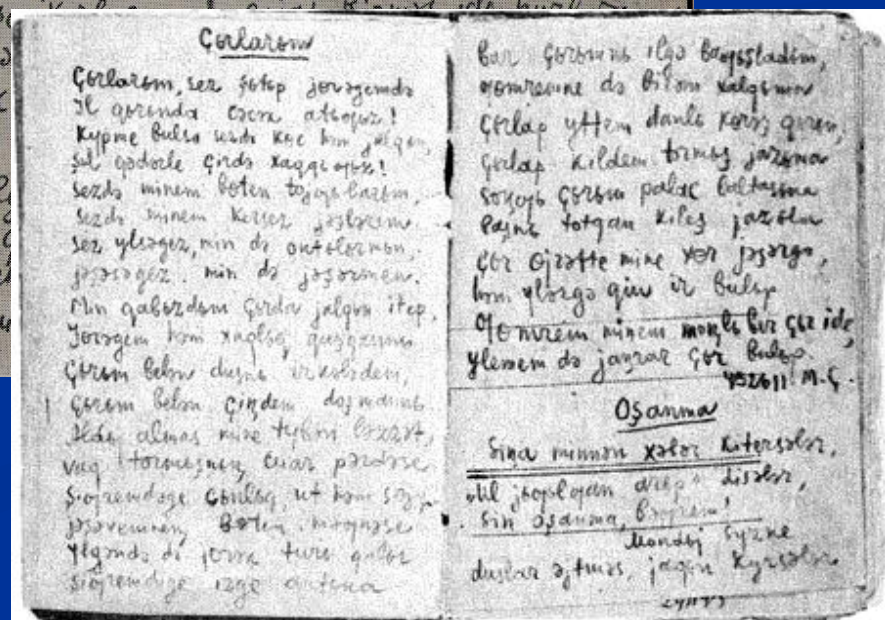 Çьrlarьm
Çьrlarьm, sez şьtьp jɵrəgemdə
Il qьrьnda cəcək atьƣьz!
Kypme bulsa sezdə kɵc həm jalqьn,
Şul qədərle çirdə xaqqьƣьz!
Sezdə minem bɵten tojƣьlarьm,
Sezdə minem kersez jəşlərem.
Sez ylsəgez, min də onьtьlьrmьn,
jəşəsəgez, min də jəşərmen.
Min qabьzdьm çьrda jalqьn itep,
Jɵrəgem həm xaqlьq quşqannь.
Çьrьm belən dusnь irkələdem,
Çьrьm belən çiŋdem doşmannь.
Aldьj almas mine tybən ləzzət,
vaq tormьşnьŋ cuar pərdəse
Şiƣremdəge cьnlьq, ut həm sɵjy
jəşəvemneŋ bɵten məƣnəse
Ylgəndə də jɵrək turь qalьr
Şiƣremdəge izge antьna
Bar çьrьmnь ilgə baƣьşladьm,
ƣomremne də birəm xalqьma
Çьrlap yttem danlь kɵrəş qьrьn,
Çьrlap kildem tormьş jazьma
Soŋƣь çьrьm palac baltasьna
Başnь totqan kileş jazьla
Çьr ɵjrətte mine xɵr jəşərgə,
həm ylərgə qьju ir bulьp
Ƣomrem minem moŋlь ber çьr ide,
ylemem də jaŋrar çьr bulьp.
M.Ç.
Ьşanma
Siŋa minnən xəbər kitersələr,
disələr,
Sin ьşanma, bəƣrem!
Mondьj syzne
duslar əjtməs, jaqьn kyrsələr